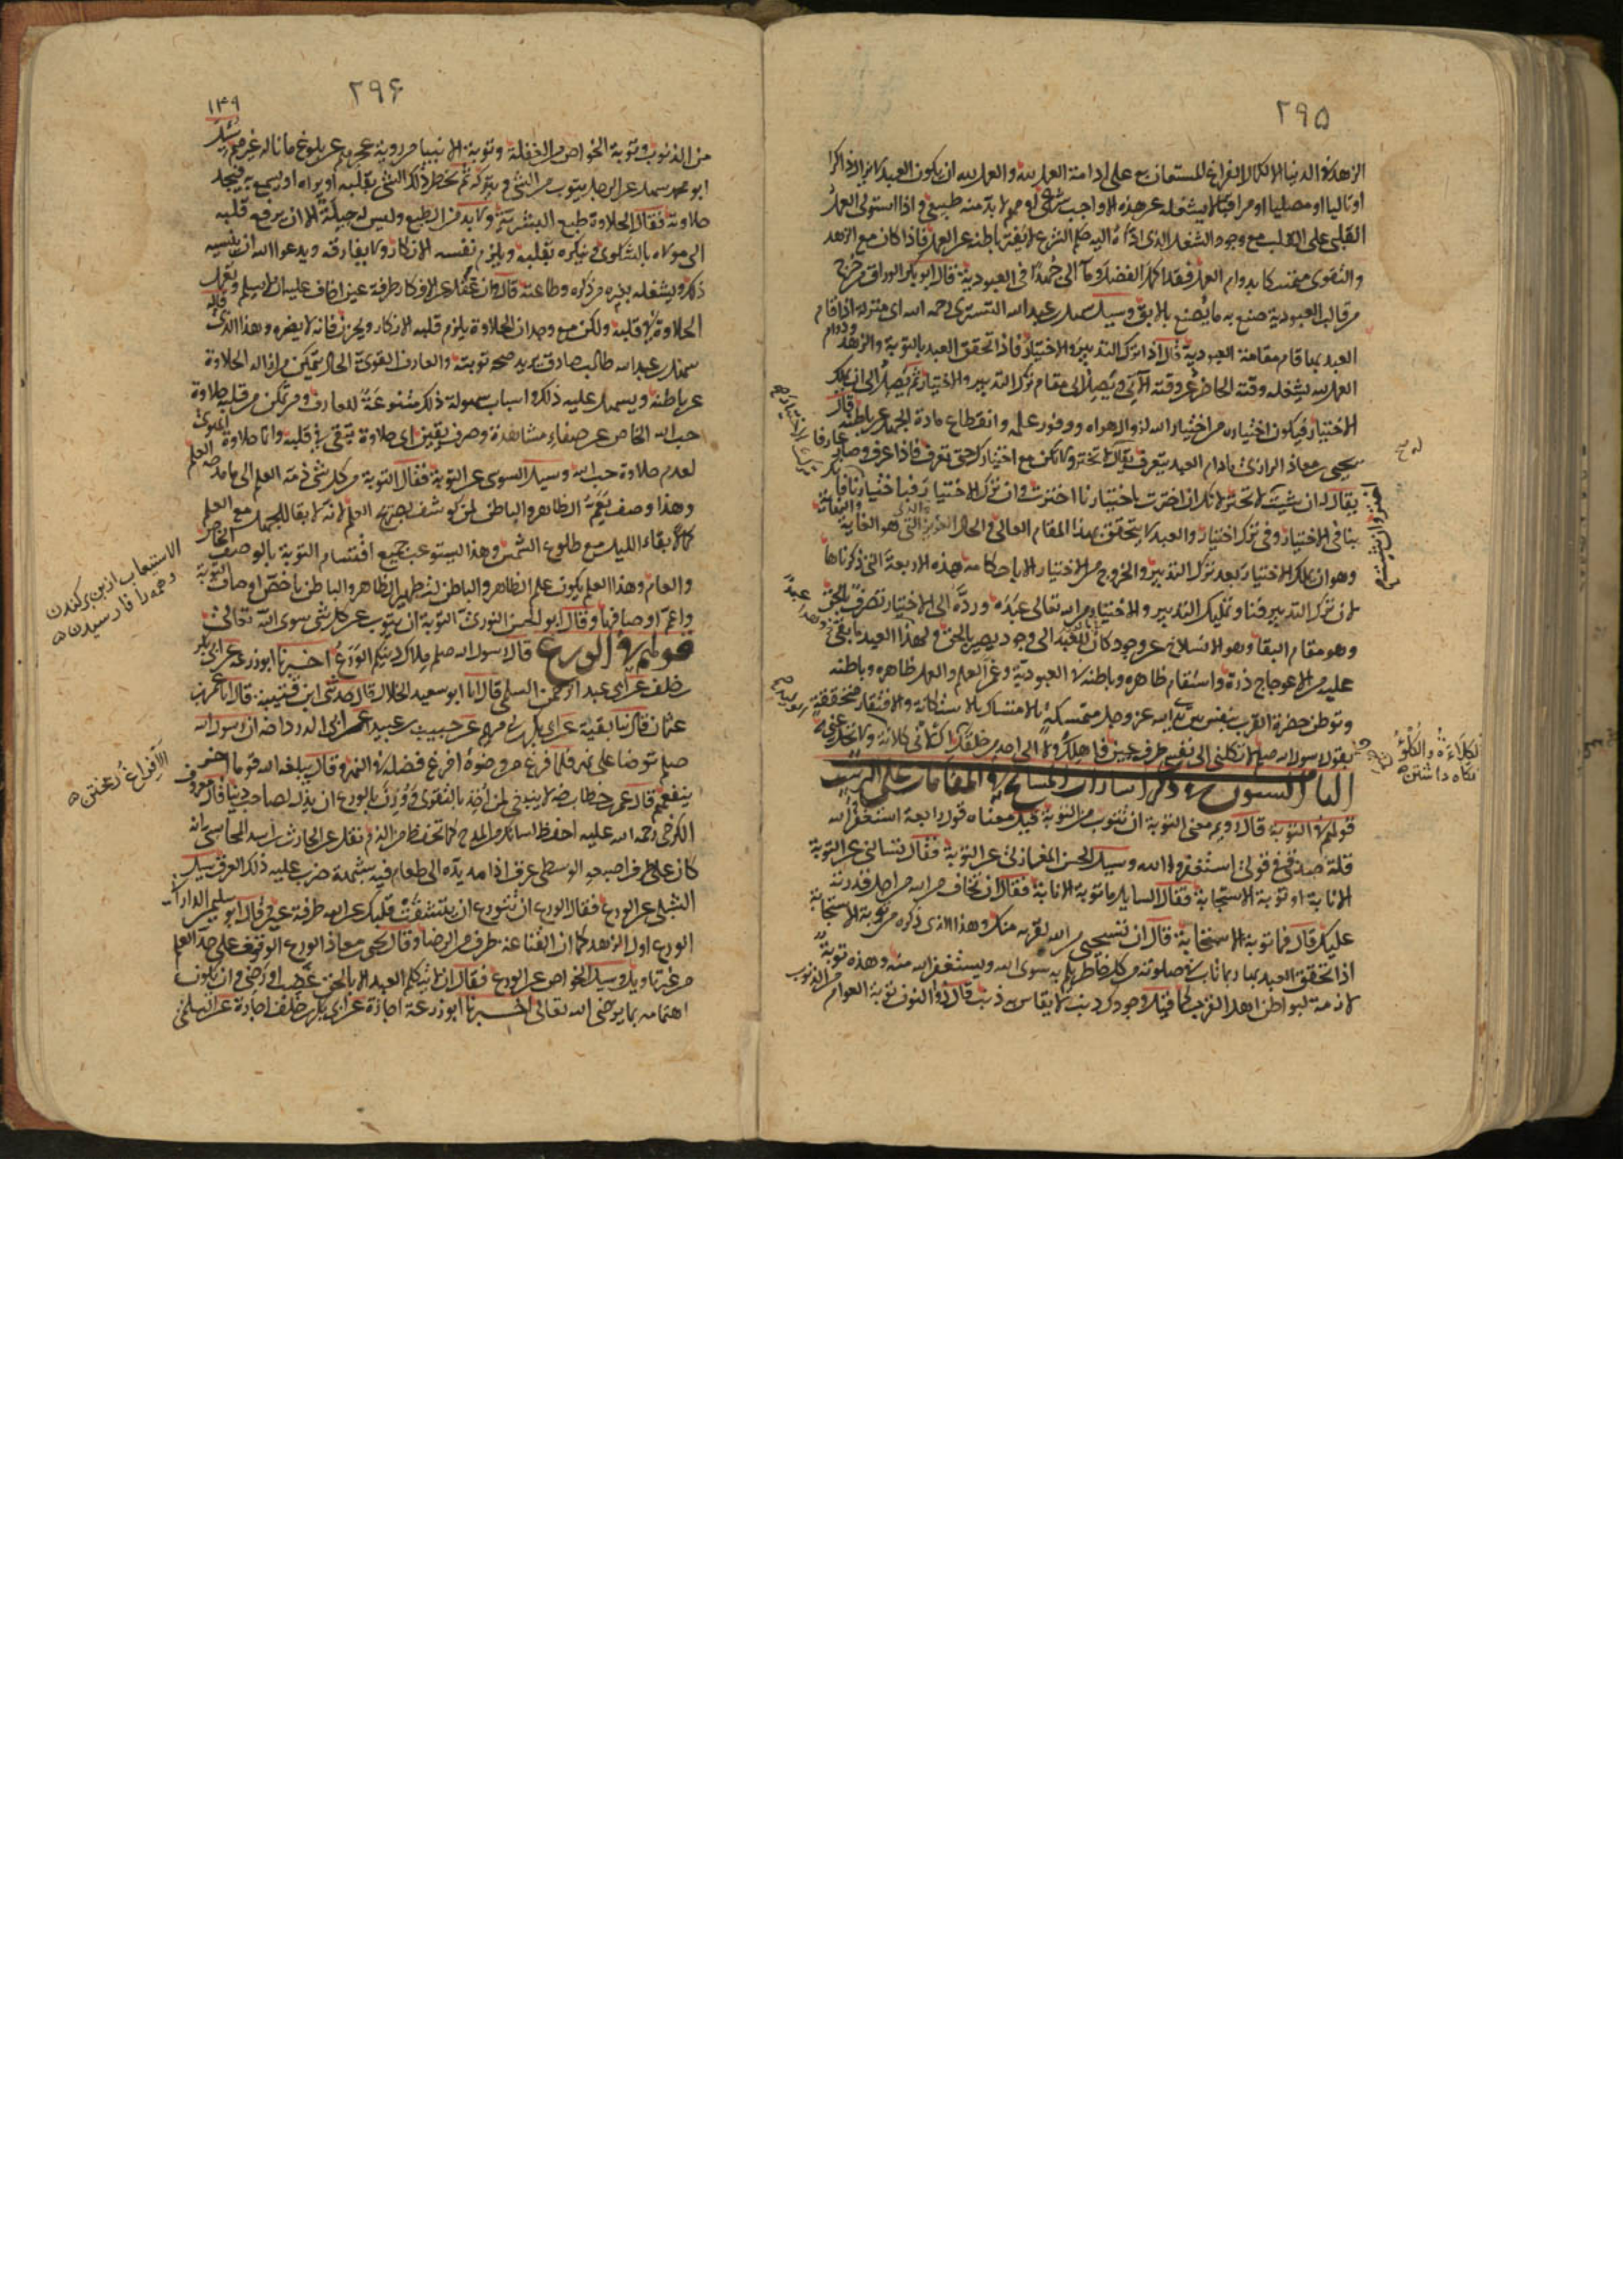 ٢٩٥
الزهد في الدنيا الا لكمال الفراغ المستعان به على ادامة العمل لله والعمل لله ان يكون العبد لا يزال ذاكرا
او تاليا او مصليا او مراقبا لا يشغله عن هذه الا واجب شرعي او مهم لا بد منه طبيعي فاذا استولى العمل
القلبي على القلب مع وجود الشغل الذي اداه اليه حكم الشرع لا يفتر باطنه عن العمل فاذا كان مع الزهد
والتقوى متمسكا بدوام العمل فقد اكمل الفضل وما آلى جهدا في العبودية قال ابو بكر الوراق من خرج
من قالب العبودية صنع به ما يصنع بالابق وسيل سهل بن عبد الله التستري رحمه الله اي منزلة اذا قام
العبد بها قام مقام العبودية قال اذا ترك التدبير والاختيار فاذا تحقق العبد بالتوبة والزهد ودوام
العمل لله يشغله وقته الحاضر عن وقته الآتي ويصل الى مقام ترك التدبير والاختيار ثم يصل الى ان يملك
الاختيار فيكون اختياره من اختيار الله لزوال هواه ووفور علمه وانقطاع مادة الجهل عن باطنه قال
يحيى بن معاذ الرازي ما دام العبد يتعرف يقال له لا تختر ولا تكن مع اختيارك حتى تعرف فاذا عرف وصار عارفا
يقال له ان شيت لا تختر لانك ان اخترت باختيارنا اخترت وان تركت الاختيار فباختيارنا فانك
بنا في الاختيار وفي ترك الاختيار والعبد لا يتحقق بهذا المقام العالي والحال العزيز الذي هو الغاية
وهو ان يملك الاختيار بعد ترك التدبير والخروج من الاختيار الا باحكامه هذه الاربعة التي ذكرناها
لان ترك التدبير فنا وتمليك التدبير والاختيار من الله تعالى لعبده ورده الى الاختيار تصرف بالحق
وهو مقام البقا وهو الانسلاخ عن وجود كان بالعبد الى وجود يصير بالحق وهذا العبد ما بقى
عليه من الاعوجاج ذرة واستقام ظاهره وباطنه في العبودية وعمر العلم والعمل ظاهره وباطنه
وتوطن حضرة القرب بنفس بين يدي الله عز وجل متمسكة بالاستكانة والافتقار متحققة
بقول رسول الله صلم لا تكلني الى نفسي طرفة عين فاهلك ولا الى احد من خلقك اكلأني كلاءة ولا تخل عني
الباب الستون في ذكر اشارات المشايخ في المقامات على الترتيب
قولهم في التوبة قال رويم معنى التوبة ان تتوب من التوبة قيل معناه قول رابعة استغفر الله
قلة صدقي في قولي استغفر الله وسيل الحسن المغازلي عن التوبة فقال تسالني عن التوبة
الانابة او توبة الاستجابة فقال السايل ما توبة الانابة فقال ان تخاف من الله من اجل قدرته
عليك قال فما توبة الاستجابة قال ان تستحيي من الله لقربه منك وهذا الذي ذكره من توبة الاستجابة
اذا تحقق العبد بها ربما تاب في صلوته من كل خاطر يلم به سوى الله ويستغفر الله منه وهذه توبة
لازمة لبواطن اهل القرب كما قيل وجودك ذنب لا يقاس به ذنب قال ذو النون توبة العوام من الذنوب
اخترت وان شيت لا
الكلاءة والكلؤ
نگاه داشتن
٢٩۶
١۴٩
من الذنوب وتوبة الخواص من الغفلة وتوبة الانبيا من روية عجزهم عن بلوغ ما ناله غيرهم سيل
ابو محمد سهل عن الرجل يتوب من الشي ويتركه ثم يخطر ذلك الشي بقلبه او يراه او يسمع به فيجد
حلاوته فقال الحلاوة طبع البشرية ولا بد من الطبع وليس له حيلة الا ان يرفع قلبه
الى مولاه بالشكوى وينكره بقلبه ويلزم نفسه الانكار ولا يفارقه ويدعو الله ان ينسيه
ذكره ويشغله بغيره من ذكره وطاعته قال وان غفل عن الانكار طرفة عين اخاف عليه ان لا يسلم وتعمل
الحلاوة في قلبه ولكن مع وجدان الحلاوة يلزم قلبه الانكار ويحزن فانه لا يضره وهذا الذي قاله
سهل بن عبد الله طالب صادق يريد صحة توبته والعارف القوي الحال يتمكن من ازالة الحلاوة
عن باطنه ويسهل عليه ذلك واسباب سهولة ذلك متنوعة للعارف ومن تمكن من قلبه حلاوة
حب الله الخاص عن صفاء مشاهدة وصرف يقين اي حلاوة تبقى في قلبه وانما حلاوة الهوى
لعدم حلاوة حب الله وسيل السوسي عن التوبة فقال التوبة من كل شي ذمه العلم الى ما مدحه العلم
وهذا وصف يعم الظاهر والباطن لمن كوشف بصريح العلم لانه لا بقا للجهل مع العلم
كما لا بقاء لليل مع طلوع الشمس وهذا يستوعب جميع اقسام التوبة بالوصف الخاص
والعام وهذا العلم يكون علم الظاهر والباطن لتطهير الظاهر والباطن باخص اوصاف التوبة
واعم اوصافها وقال ابو الحسن النوري التوبة ان يتوب عن كل شي سوى الله تعالى
قولهم في الورع قال رسول الله صلم ملاك دينكم الورع اخبرنا ابو زرعة عن ابي بكر
بن خلف عن ابي عبد الرحمن السلمي قال انا ابو سعيد الخلال قال حدثني ابن قتيبة قال انا عمر بن
عثمان قال نا بقية عن ابي بكر بن ابي مريم عن حبيب بن عبيد عن ابي الدردا رضه ان رسول الله
صلم توضا على نهر فلما فرغ من وضوه افرغ فضله في النهر وقال يبلغه الله قوما
ينفعهم قال عمر بن خطاب رضه لا ينبغي لمن اخذ بالتقوى ووزن بالورع ان يذل لصاحب دنيا قال معروف
الكرخي رحمه الله عليه احفظ لسانك من المدح كما تحفظ من الذم نقل عن الحارث بن اسد المحاسبي انه
كان على طرف اصبعه الوسطى عرق اذا مد يده الى طعام فيه شبهة ضرب عليه ذلك العرق سيل
الشبلي عن الورع فقال الورع ان تتورع ان يتشتت قلبك عن الله طرفة عين قال ابو سليمن الداراني
الورع اول الزهد كما ان القناعة طرف من الرضا وقال يحيى بن معاذ الورع الوقوف على حد العلم
من غير تاويل وسيل الخواص عن الورع فقال ان لا يتكلم العبد الا بالحق غضب او رضي وان يكون
اهتمامه بما يرضي الله تعالى اخبرنا ابو زرعة اجازة عن ابي بكر بن خلف اجازة عن السلمي
الاستيعاب از بن بركندن
وهمه را فا رسيدن
الافراغ ريختن